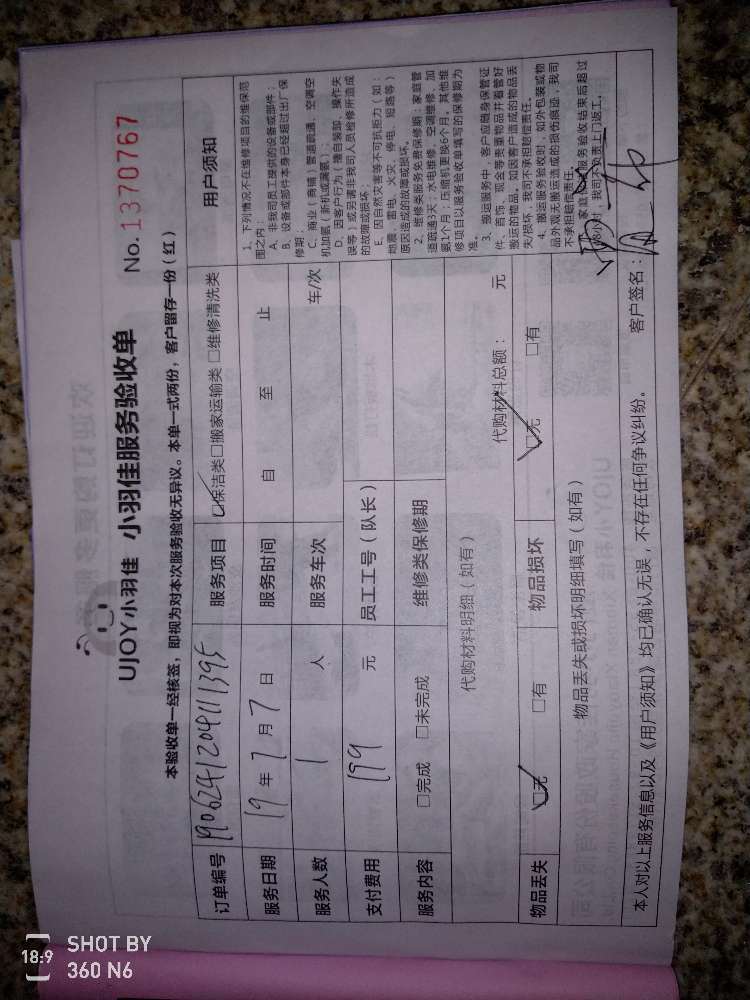 UJOY小羽佳 小羽佳服务验收单 No.1370767
本验收单一经核签，即视为对本次服务验收无异议。本单一式两份，客户留存一份（红）
订单编号 1906241204111395 服务项目 保洁类□搬家运输类□维修清洗类 用户须知
服务日期 19年7月7日 服务时间 自 至 止
服务人数 1 人 服务车次 车/次
支付费用 199 元 员工工号（队长）
服务内容 □完成 □未完成 维修类保修期
代购材料明细（如有） 代购材料总额： 元
物品丢失 □无 □有 物品损坏 □无 □有
物品丢失或损坏明细填写（如有）
1、下列情况不在维修项目的维保范
围之内：
A、非我司员工提供的设备或部件；
B、设备或部件本身已经超过出厂保
修期；
C、商业（商铺）管道疏通、空调空
机加氨（新机或漏氨）；
D、因客户行为（擅自装卸、操作失
误等）或另请非我司人员检修所造成
的故障或损坏；
E、因自然灾害等不可抗拒力（如：
地震、雷电、火灾、停电、短路等）
原因造成的故障或损坏。
2、维修类服务免费保修期：家庭管
道疏通3天；水电维修、空调维修、加
氨1个月；压缩机更换6个月，其他维
修项目以服务验收单填写的保修期为
准。
3、搬运服务中，客户应随身保管证
件、首饰、现金等贵重物品并看管好
搬运的物品。如因客户造成的物品丢
失/损坏，我司不承担赔偿责任。
4、搬运服务验收时，如外包装或物
品外观无搬运造成的损伤痕迹，我司
不承担赔偿责任。
家庭 服务验收结束后超过
48小时，我司不负责上门返工。
本人对以上服务信息以及《用户须知》均已确认无误，不存在任何争议纠纷。 客户签名：
18:9 SHOT BY
360 N6